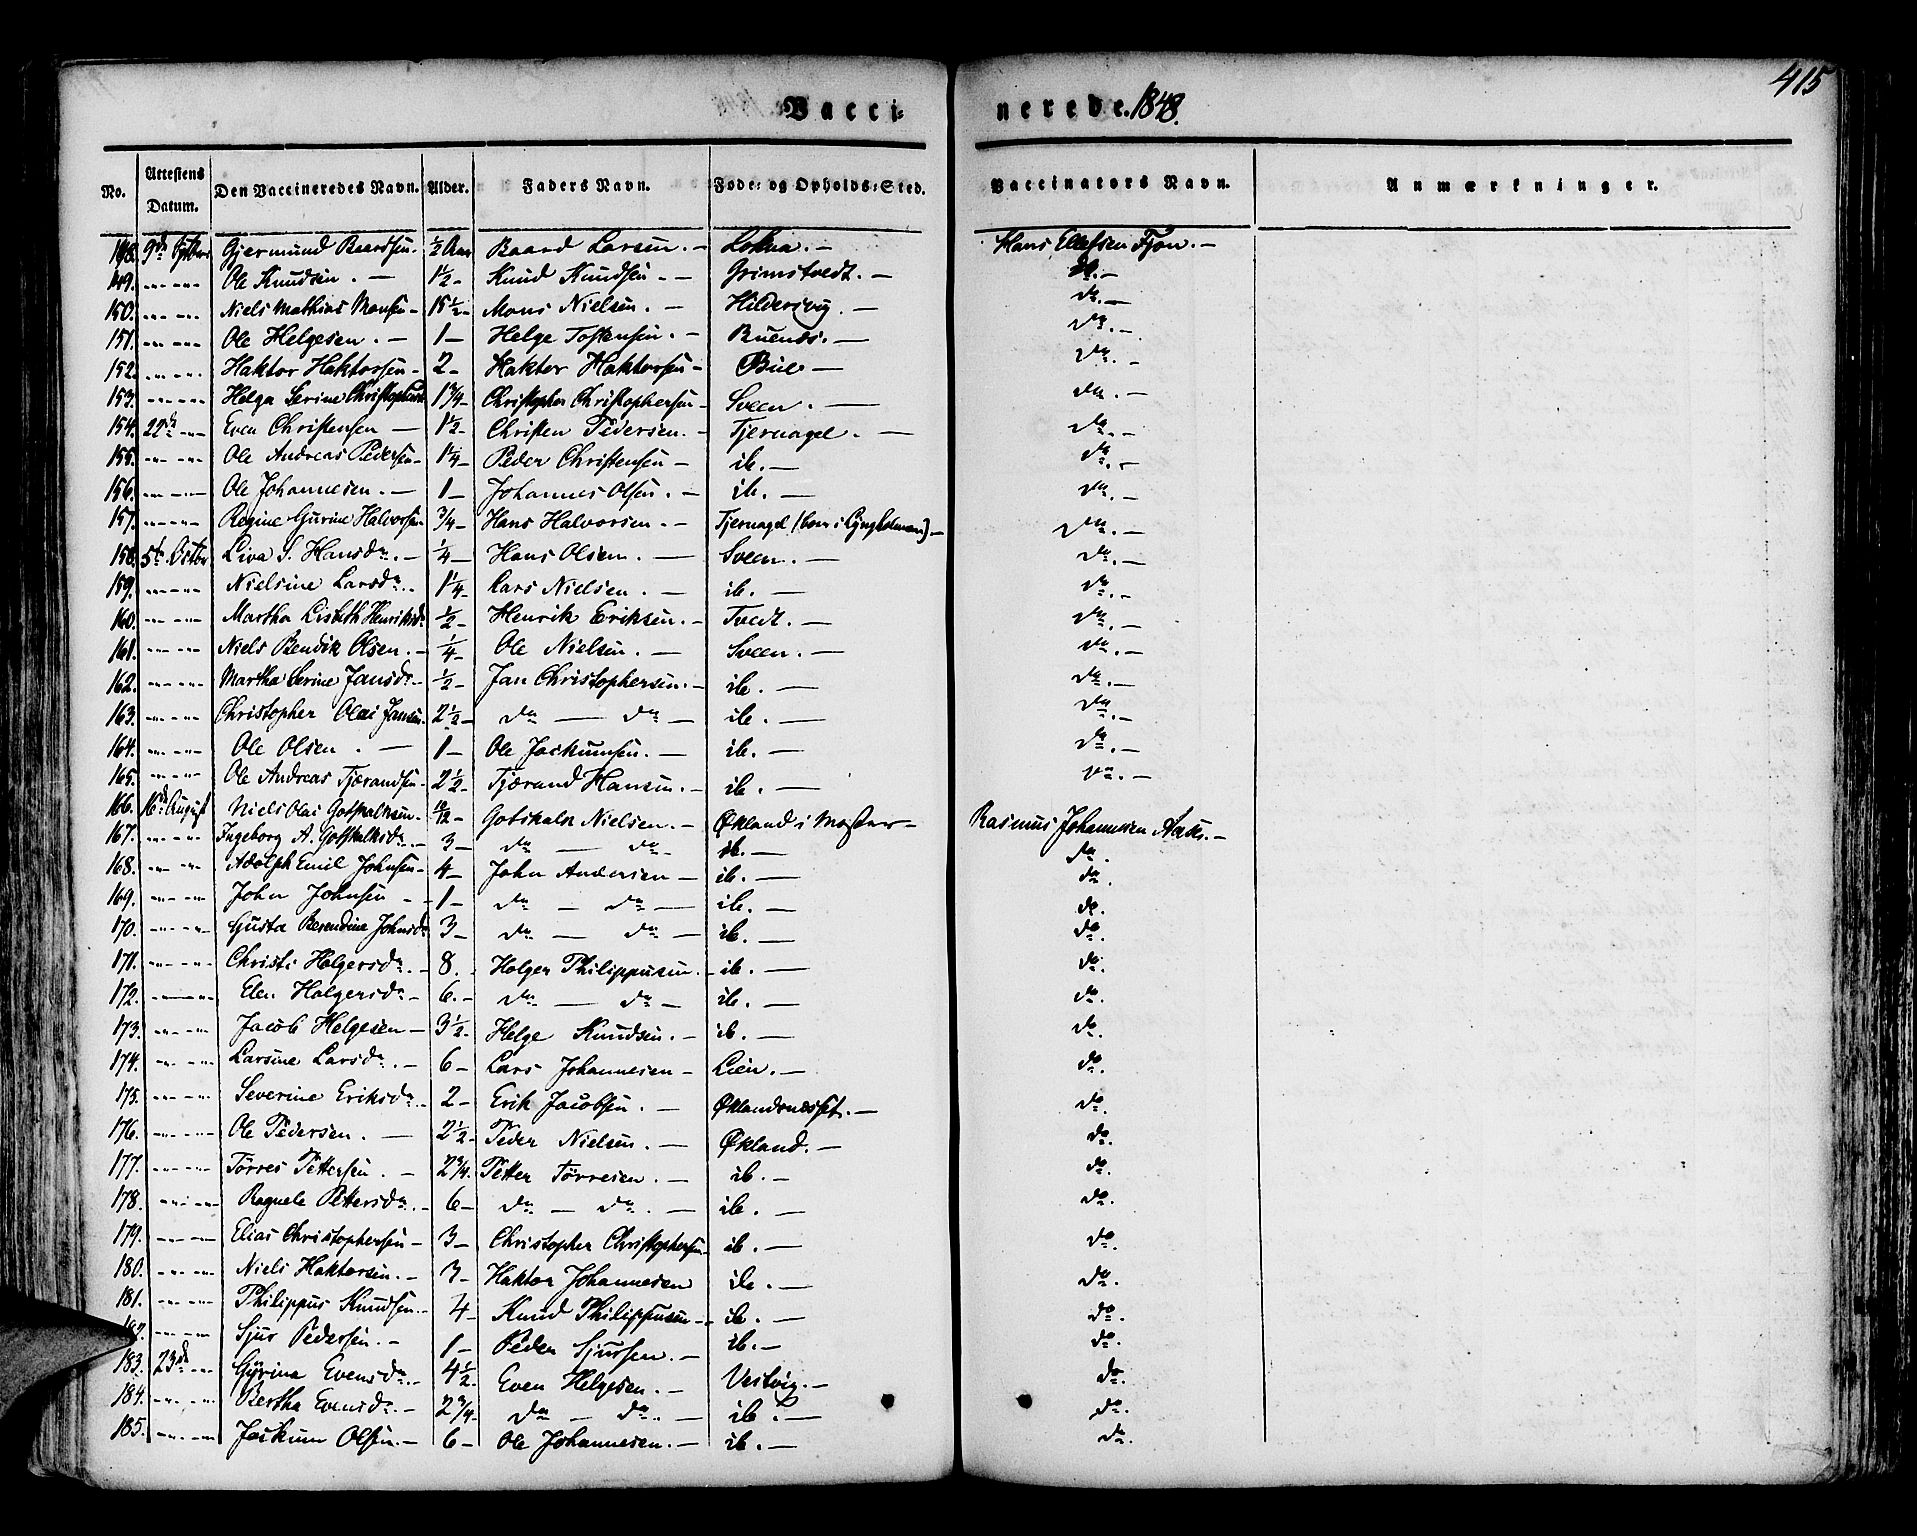 415
Vacci- nerede. 1848.
No. Attestens Datum. Den Vaccineredes Navn. Alder. Faders Navn. Føde- og Opholds-Sted. Vaccinators Navn. Anmærkninger.
148. 9de Gjermund Baardsen. ½ Aar Baard Larsen. — Hans Ellefsen Fjon. —
149. „ „ Ole Knudsen. — 1½ - Knud Knudsen - - Grimstvedt. — do. —
150. „ „ Niels Mathias Monsen - 15½ - Mons Nielsen. — Hildersvig. — do. —
151. „ „ Ole Helgesen. — 1 — Helge Tostensen. — Buenæs. — do. —
152. „ „ Haktor Haktorsen - 2 - Haktor Haktorsen - Bue — do. —
153. „ „ Helga Serine 1¾ - Christopher Christophersen - Sveen. — do. —
154. 22de „ Even Christensen — 1½ - Christen Pedersen. — Tjernagel. — do. —
155. „ „ Ole Andreas Pedersen - 1¼ - Peder Christensen — ib. — do. —
156. „ „ Ole Johannesen. — 1 — Johannes Olsen. — ib. — do. —
157. „ „ Regine Gurine Halvorsen ¾ - Hans Halvorsen. — Tjernagel (bor i Lyngholmen) — do. —
158. 5te Octbr Liva S. Hansdr. — ¼ - Hans Olsen. — Sveen. — do. —
159. „ „ Nielsine Larsdr. 1¼ - Lars Nielsen. — ib. — do. —
160. „ „ Martha Lisbeth Henriksdr ½ - Henrik Eriksen. — Tvedt. — do. —
161. „ „ Niels Bendik Olsen. — ¼ - Ole Nielsen. — Sveen. — do. —
162. „ „ Martha Serine Jansdr. - ½ - Jan Christophersen. — ib. — do. —
163. „ „ Christopher Olai Jansen. 2½ - do — do — ib. — do. —
164. „ „ Ole Olsen. — 1 — Ole Jackumsen. — ib. — do. —
165. „ „ Ole Andreas Tjerandsen - 2½ - Tjærand Hansen. — ib. — do. —
166. 16de August Niels Olai Gotskalksen. 10/12 - Gotskalk Nielsen. — Økland i Moster — Rasmus Johannesen —
167. „ „ Ingeborg A. Gotskalksdr. — 3 — do — do - ib. — do.
168. „ „ Adolph Emil Johnsen - 4 - John Andersen — ib. — do.
169. „ „ John Johnsen - 1 - do — do — ib. — do.
170. „ „ Gusta Berendine Johnsdr 3 - do — do — ib. — do.
171. „ „ Christi Holgersdr. - 8. - Holger Philippusen. - ib. — do.
172. „ „ Elen Holgersdr - 6. - do — do — ib. — do.
173. „ „ Jacob Helgesen — 3½ - Helge Knudsen. — ib. — do.
174. „ „ Larsine Larsdr. — 6 - Lars Johannesen - Lien. — do.
175. „ „ Severine Eriksdr. 2 - Erik Jacobsen. — Øklandnæsset. — do.
176. „ „ Ole Pedersen. — 2½ - Peder Nielsen. — Økland. — do.
177. „ „ Tørres Pettersen. — 2¾ - Petter Torresen. — ib. — do.
178. „ „ Ragnele Pettersdr. 6 - do — do. — ib. — do.
179. „ „ Elias Christophersen — 3 - Christopher Christophersen - ib. — do.
180. „ „ Niels Haktorsen. — 3 - Haktor Johannesen ib. — do.
181. „ „ Philippus Knudsen. 4 - Knud Philippusen - ib. — do.
182. „ „ Sjur Pedersen. — 1 - Peder Sjursen. — ib. — do.
183. 23de „ Gurina Evensdr. 4½ - Even Helgesen. — Vestvig. — do.
184. „ „ Bertha Evensdr. - 2¾ - do — do. — ib. — do.
185. „ „ Jackum Olsen. — 6 - Ole Johannesen. — ib. — do.